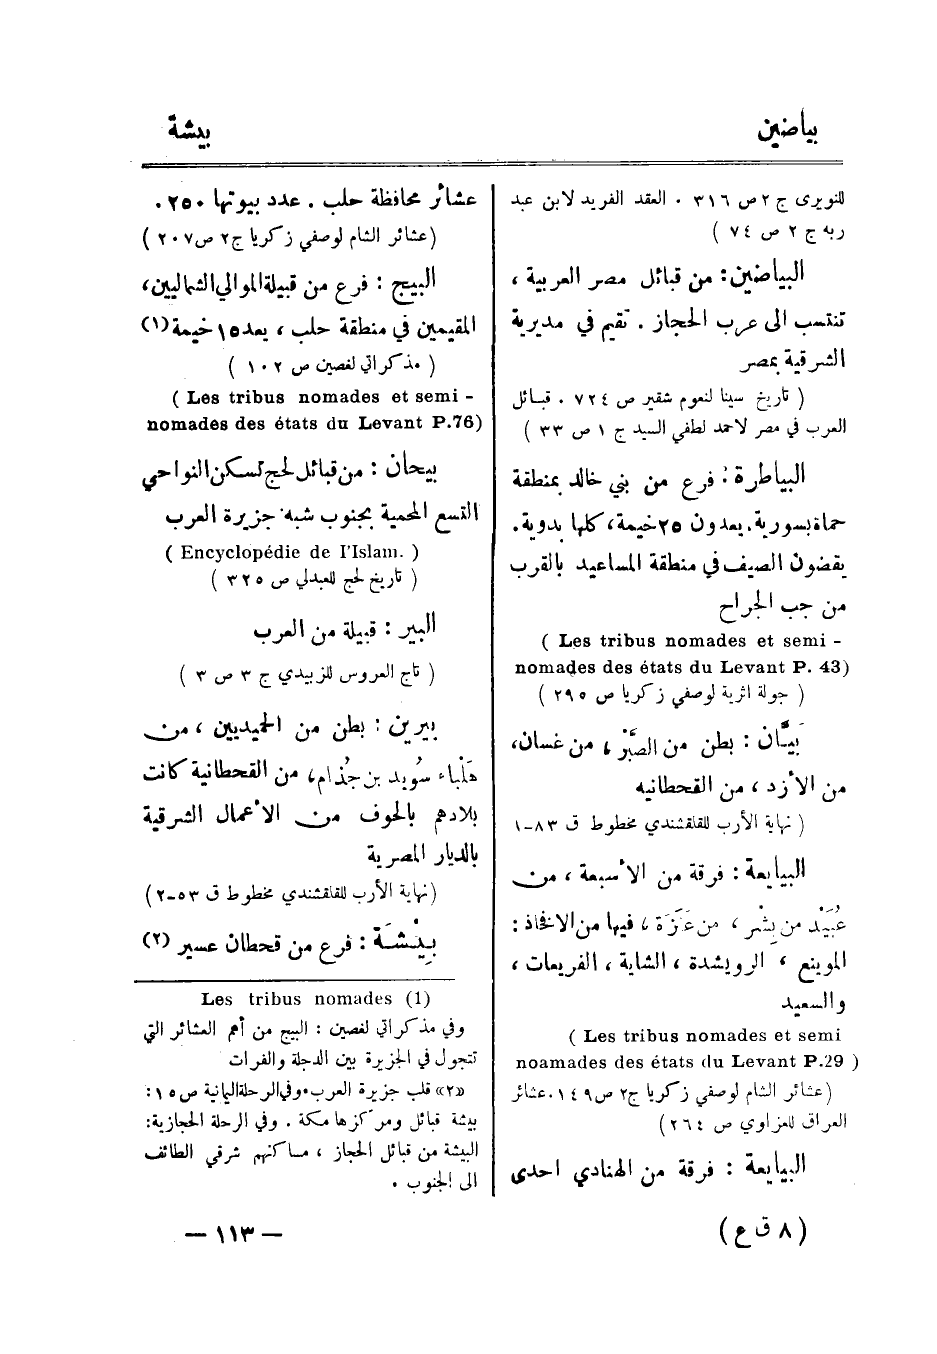 بياضين
بيشة
للنويرى ج ٢ ص ٣١٦ . العقد الفريد لابن عبد
ربه ج ٢ ص ٧٤ )
البياضين : من قبائل مصر العربية ،
تنتسب الى عرب الحجاز . تقيم في مديرية
الشرقية بمصر
( تاريخ سينا لنعوم شقير ص ٧٢٤ . قبائل
العرب في مصر لاحمد لطفي السيد ج ١ ص ٣٣ )
البياطرة : فرع من بني خالد بمنطقة
حماة بسورية . يعدون ٢٥ خيمة ، كلها بدوية .
يقضون الصيف في منطقة المساعيد بالقرب
من جب الجراح
( Les tribus nomades et semi -
nomades des états du Levant P. 43)
( جولة اثرية لوصفي زكريا ص ٢٩٥ )
بَيَّان : بطن من الصَّبْر ، من غسان ،
من الأزد ، من القحطانيه
( نهاية الأرب للقلقشندي مخطوط ق ٨٣-١
البيايعة : فرقة من الأسبعة ، من
عُبَيْد من بِشْر ، من عَنَزَة ، فيها من الافخاذ :
الموينع ، الرويشدة ، الشاية ، الفريعات ،
والسعيد
( Les tribus nomades et semi
noamades des états du Levant P.29 )
(عشائر الشام لوصفي زكريا ج٢ ص١٤٩ . عشائر
العراق للعزاوي ص ٢٦٤)
البيايعة : فرقة من الهنادي احدى
عشائر محافظة حلب . عدد بيوتها ٢٥٠ .
(عشائر الشام لوصفي زكريا ج٢ ص٢٠٧ )
البيج : فرع من قبيلة الموالي الشماليين ،
المقيمين في منطقة حلب ، يعد ١٥ خيمة (١)
( مذكراتي لغصين ص ١٠٢ )
( Les tribus nomades et semi -
nomades des états du Levant P.76)
بيحان : من قبائل لحج تسكن النواحي
التسع المحمية بجنوب شبه جزيرة العرب
( Encyclopédie de l'Islam. )
( تاريخ لحج للعبدلي ص ٣٢٥ )
البير : قبيلة من العرب
( تاج العروس للزبيدي ج ٣ ص ٣ )
بيرين : بطن من الحميديين ، من
هَلْباء سُويد بن جُذام ، من القحطانية كانت
بلادهم بالحوف من الأعمال الشرقية
بالديار المصرية
(نهاية الأرب للقلقشندي مخطوط ق ٥٣-٢)
بِيْشَة : فرع من قحطان عسير (٢)
Les tribus nomades (1)
وفي مذكراتي لغصين : البيج من أهم العشائر التي
تتجول في الجزيرة بين الدجلة والفرات
«٢» قلب جزيرة العرب . وفي الرحلة اليمانية ص ١٥ :
بيشة قبائل ومركزها مكة . وفي الرحلة الحجازية :
البيشة من قبائل الحجاز ، مساكنهم شرقي الطائف
الى الجنوب .
( ٨ ق ع )
— ١١٣ —